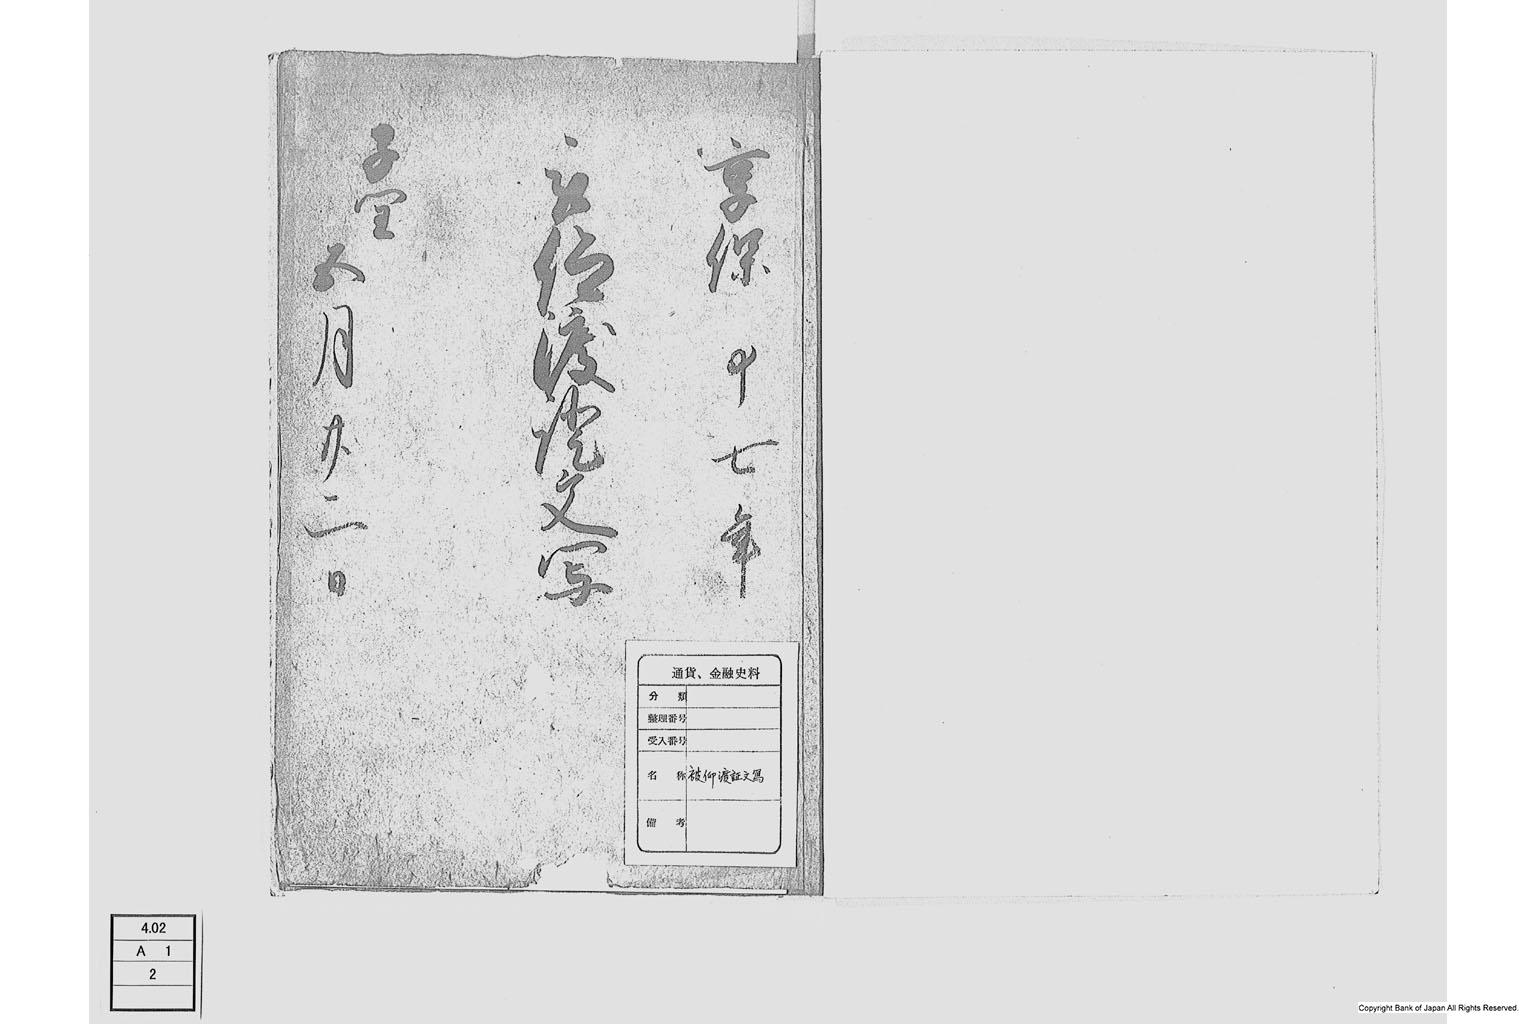 享保十七年
被仰渡證文写
子閏
五月廿二日
通貨、金融史料
分類
整理番号
受入番号
名称 被仰渡証文写
備考
4.02
A 1
2
Copyright Bank of Japan All Rights Reserved.